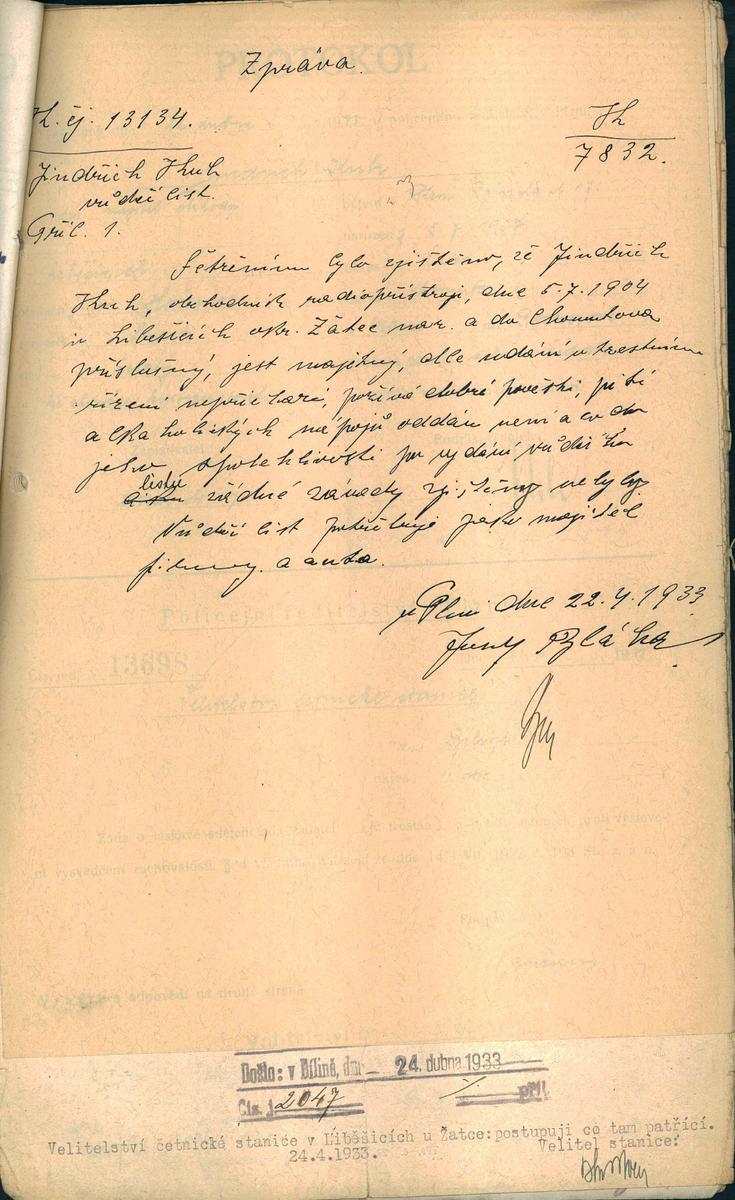 Zpráva.
K. čj. 13134.
7832.
Jindřich Kuh
vůdčí list.
Příl. 1.
Šetřením bylo zjištěno, že Jindřich
Kuh, obchodník radiopřístroji, dne 5.7.1904
v Liběšicích okr. Žatec nar. a do Chomutova
příslušný, jest majetný, dle udání v trestním
řízení nepřichází, požívá dobré pověsti, pití
alkoholických nápojů oddán není a co do
jeho spolehlivosti po vydání vůdčího
listu žádné závady zjištěny nebyly.
Vůdčí list potřebuje jako majitel
firmy a auta.
v Plzni dne 22.4.1933
Bláha
Došlo: v Bílině, dne 24. dubna 1933
Čís. j. 2047 příl.
Velitelství četnické stanice v Liběšicích u Žatce:postupuji co tam patřící.
24.4.1933. Velitel stanice:
PROTOKOL
Policejní ředitelství
13698